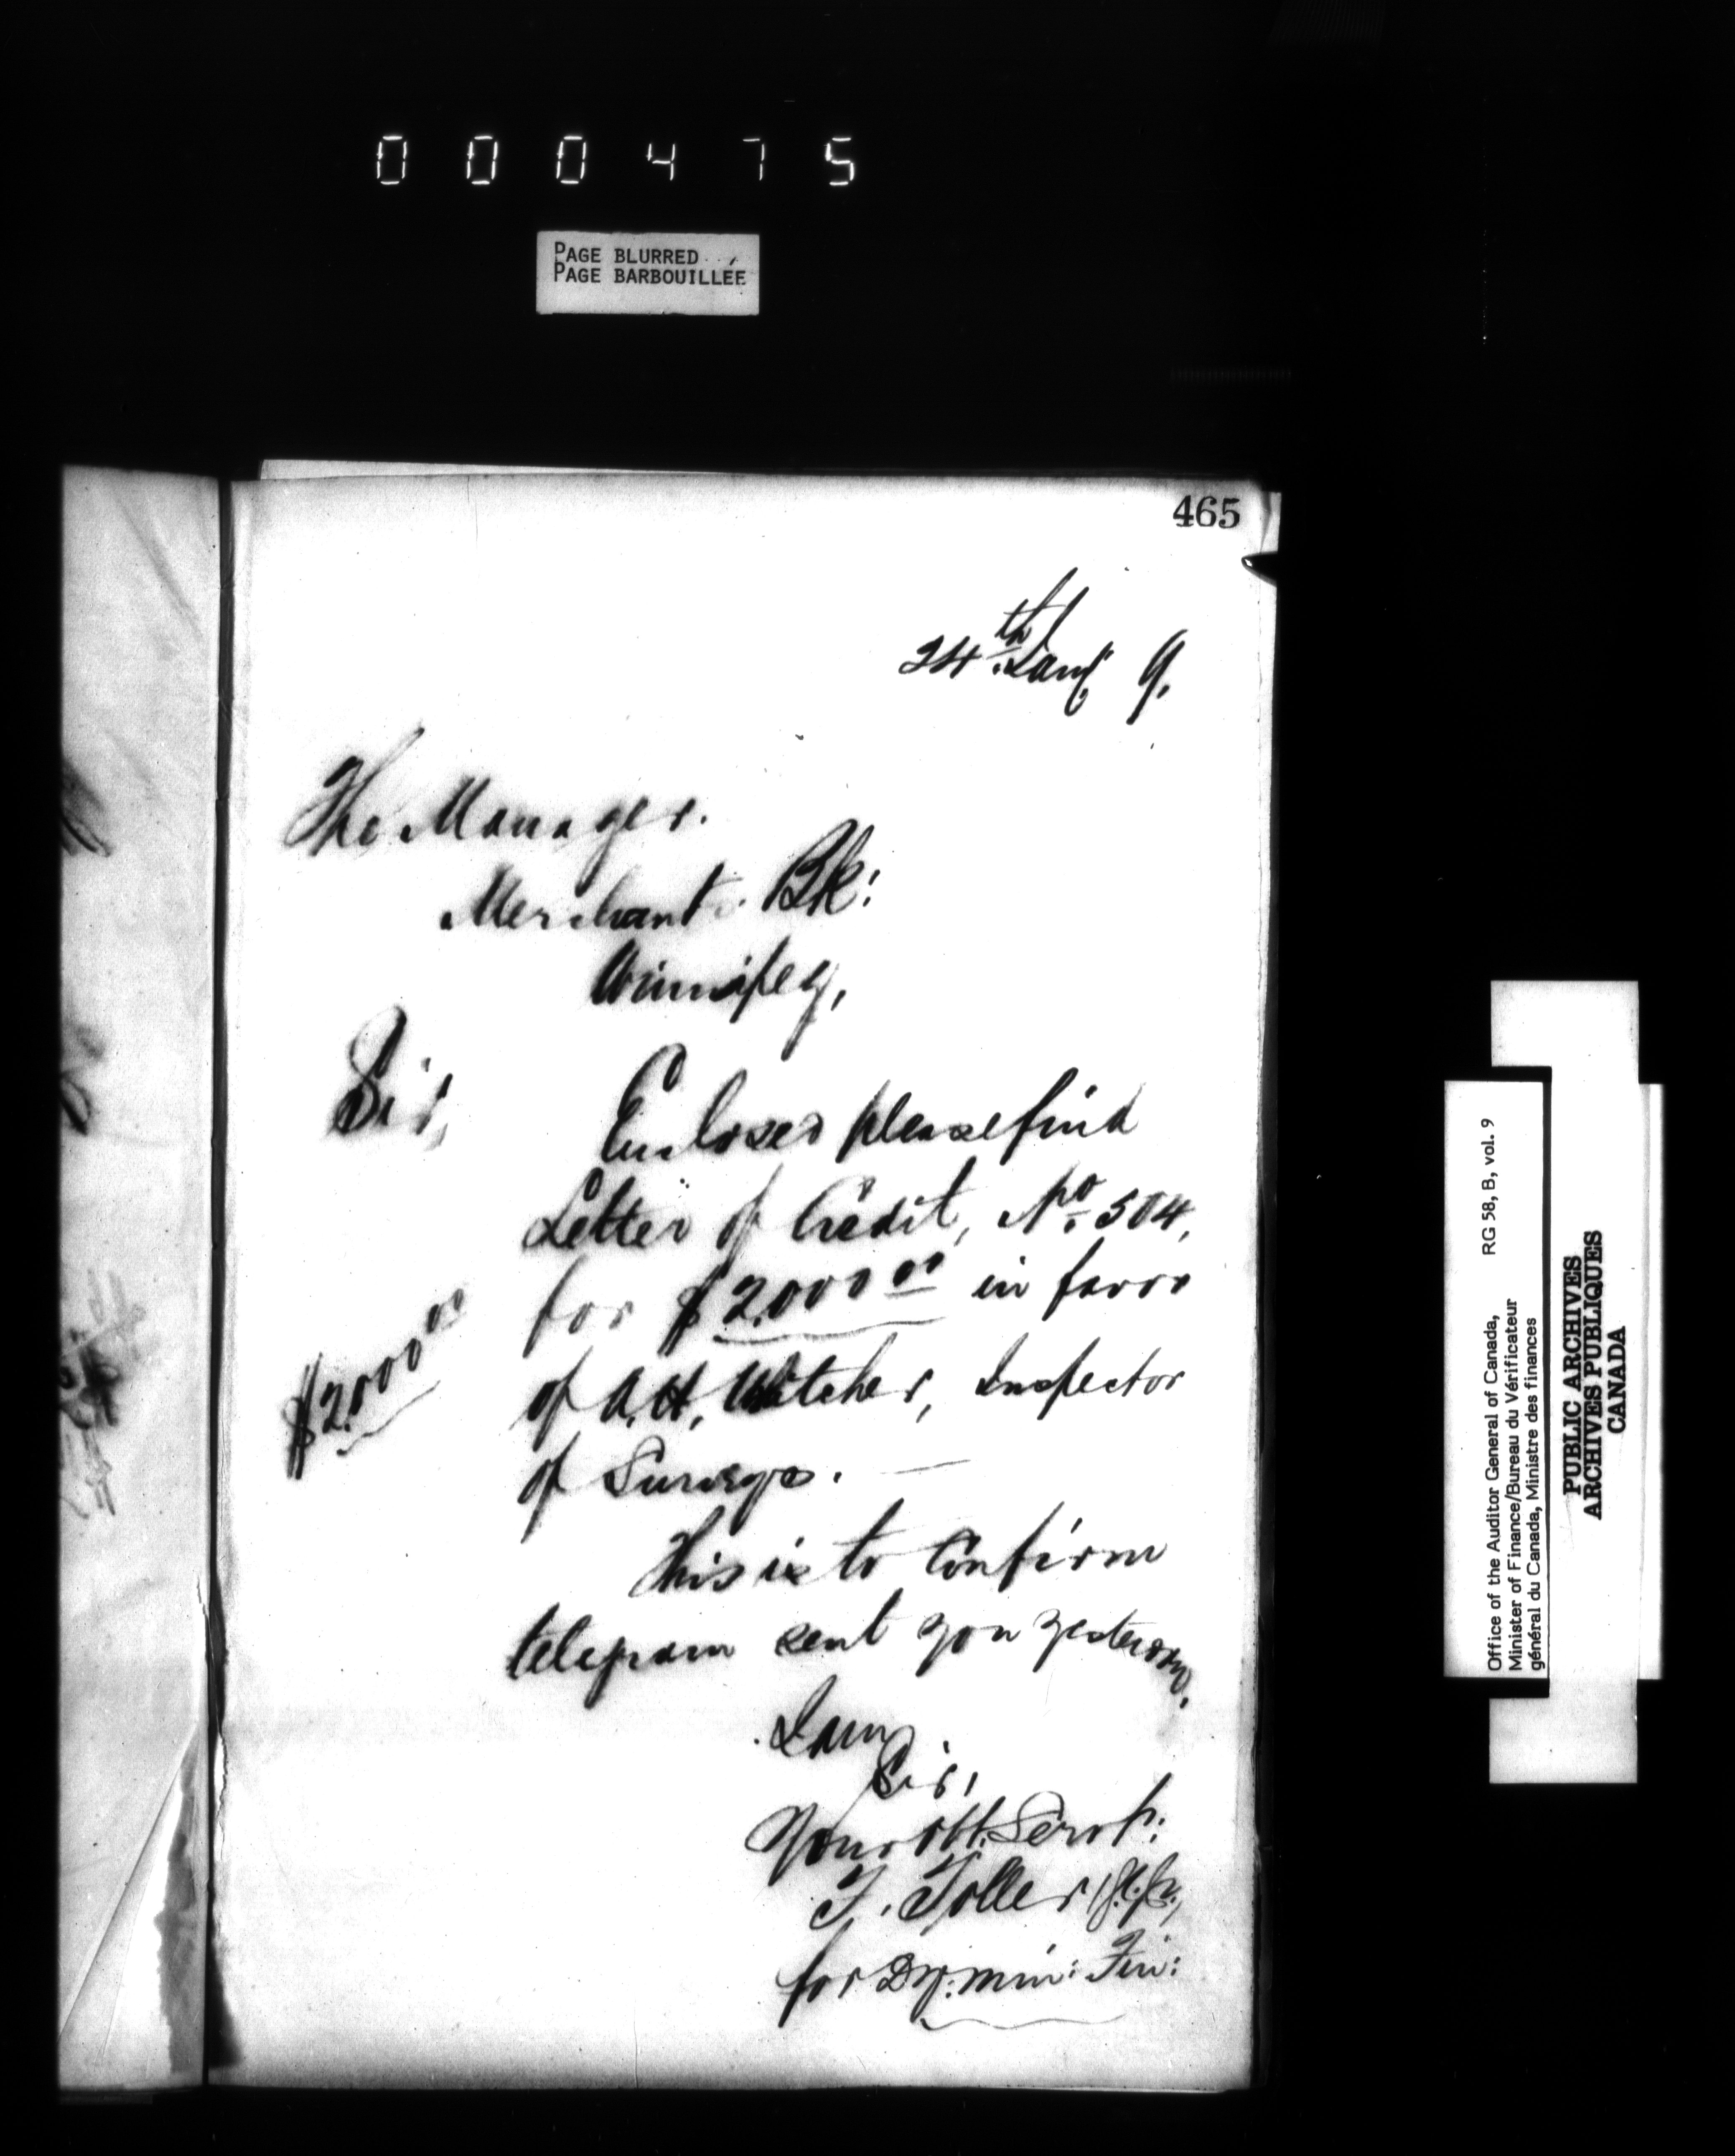 000475
PAGE BLURRED
PAGE BARBOUILLÉE
465
24th Jany 9.
The Manager.
Merchants Bk:
Winnipeg,
Sir,
Enclosed please find
Letter of Credit, No. 504,
for $2,000 00 in favor
$2,000 00
of A. H. Whitcher, Inspector
of Surveys. —
This is to Confirm
telegram sent you yesterday.
I am
Sir,
Your Obt. Servt:
F. Toller
for Dy: Min: Fin:
Office of the Auditor General of Canada, RG 58, B, vol. 9
Minister of Finance/Bureau du Vérificateur
général du Canada, Ministre des finances
PUBLIC ARCHIVES
ARCHIVES PUBLIQUES
CANADA